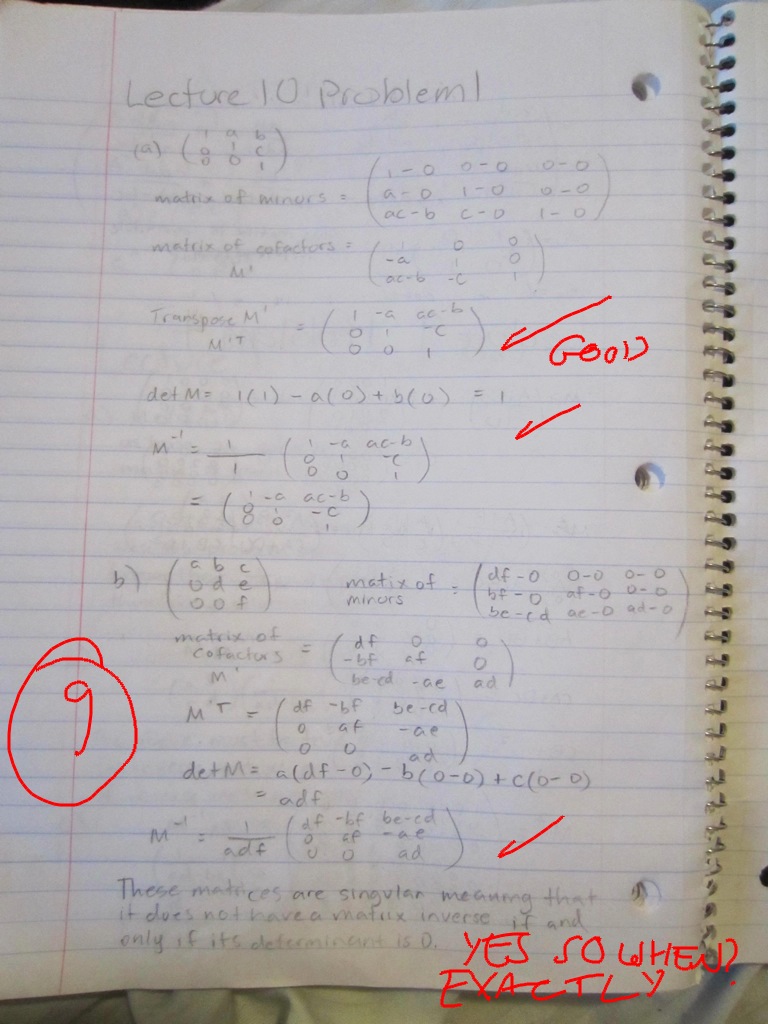 Lecture 10 Problem 1
(a) ( 1 a b
0 1 c
0 0 1 )
matrix of minors = ( 1-0 0-0 0-0
a-0 1-0 0-0
ac-b c-0 1-0 )
matrix of cofactors = ( 1 0 0
M' -a 1 0
ac-b -c 1 )
Transpose M' = ( 1 -a ac-b
M'T 0 1 -c
0 0 1 )
GOOD
det M = 1(1) - a(0) + b(0) = 1
M⁻¹ = 1/1 ( 1 -a ac-b
0 1 -c
0 0 1 )
= ( 1 -a ac-b
0 1 -c
0 0 1 )
b) ( a b c
0 d e
0 0 f )
matix of minors = ( df-0 0-0 0-0
bf-0 af-0 0-0
be-cd ae-0 ad-0 )
matrix of cofactors = ( df 0 0
M' -bf af 0
be-cd -ae ad )
M'T = ( df -bf be-cd
0 af -ae
0 0 ad )
9
det M = a(df-0) - b(0-0) + c(0-0)
= adf
M⁻¹ = 1/adf ( df -bf be-cd
0 af -ae
0 0 ad )
These matrices are singular meaning that
it does not have a matrix inverse if and
only if its determinant is 0.
YES SO WHEN?
EXACTLY